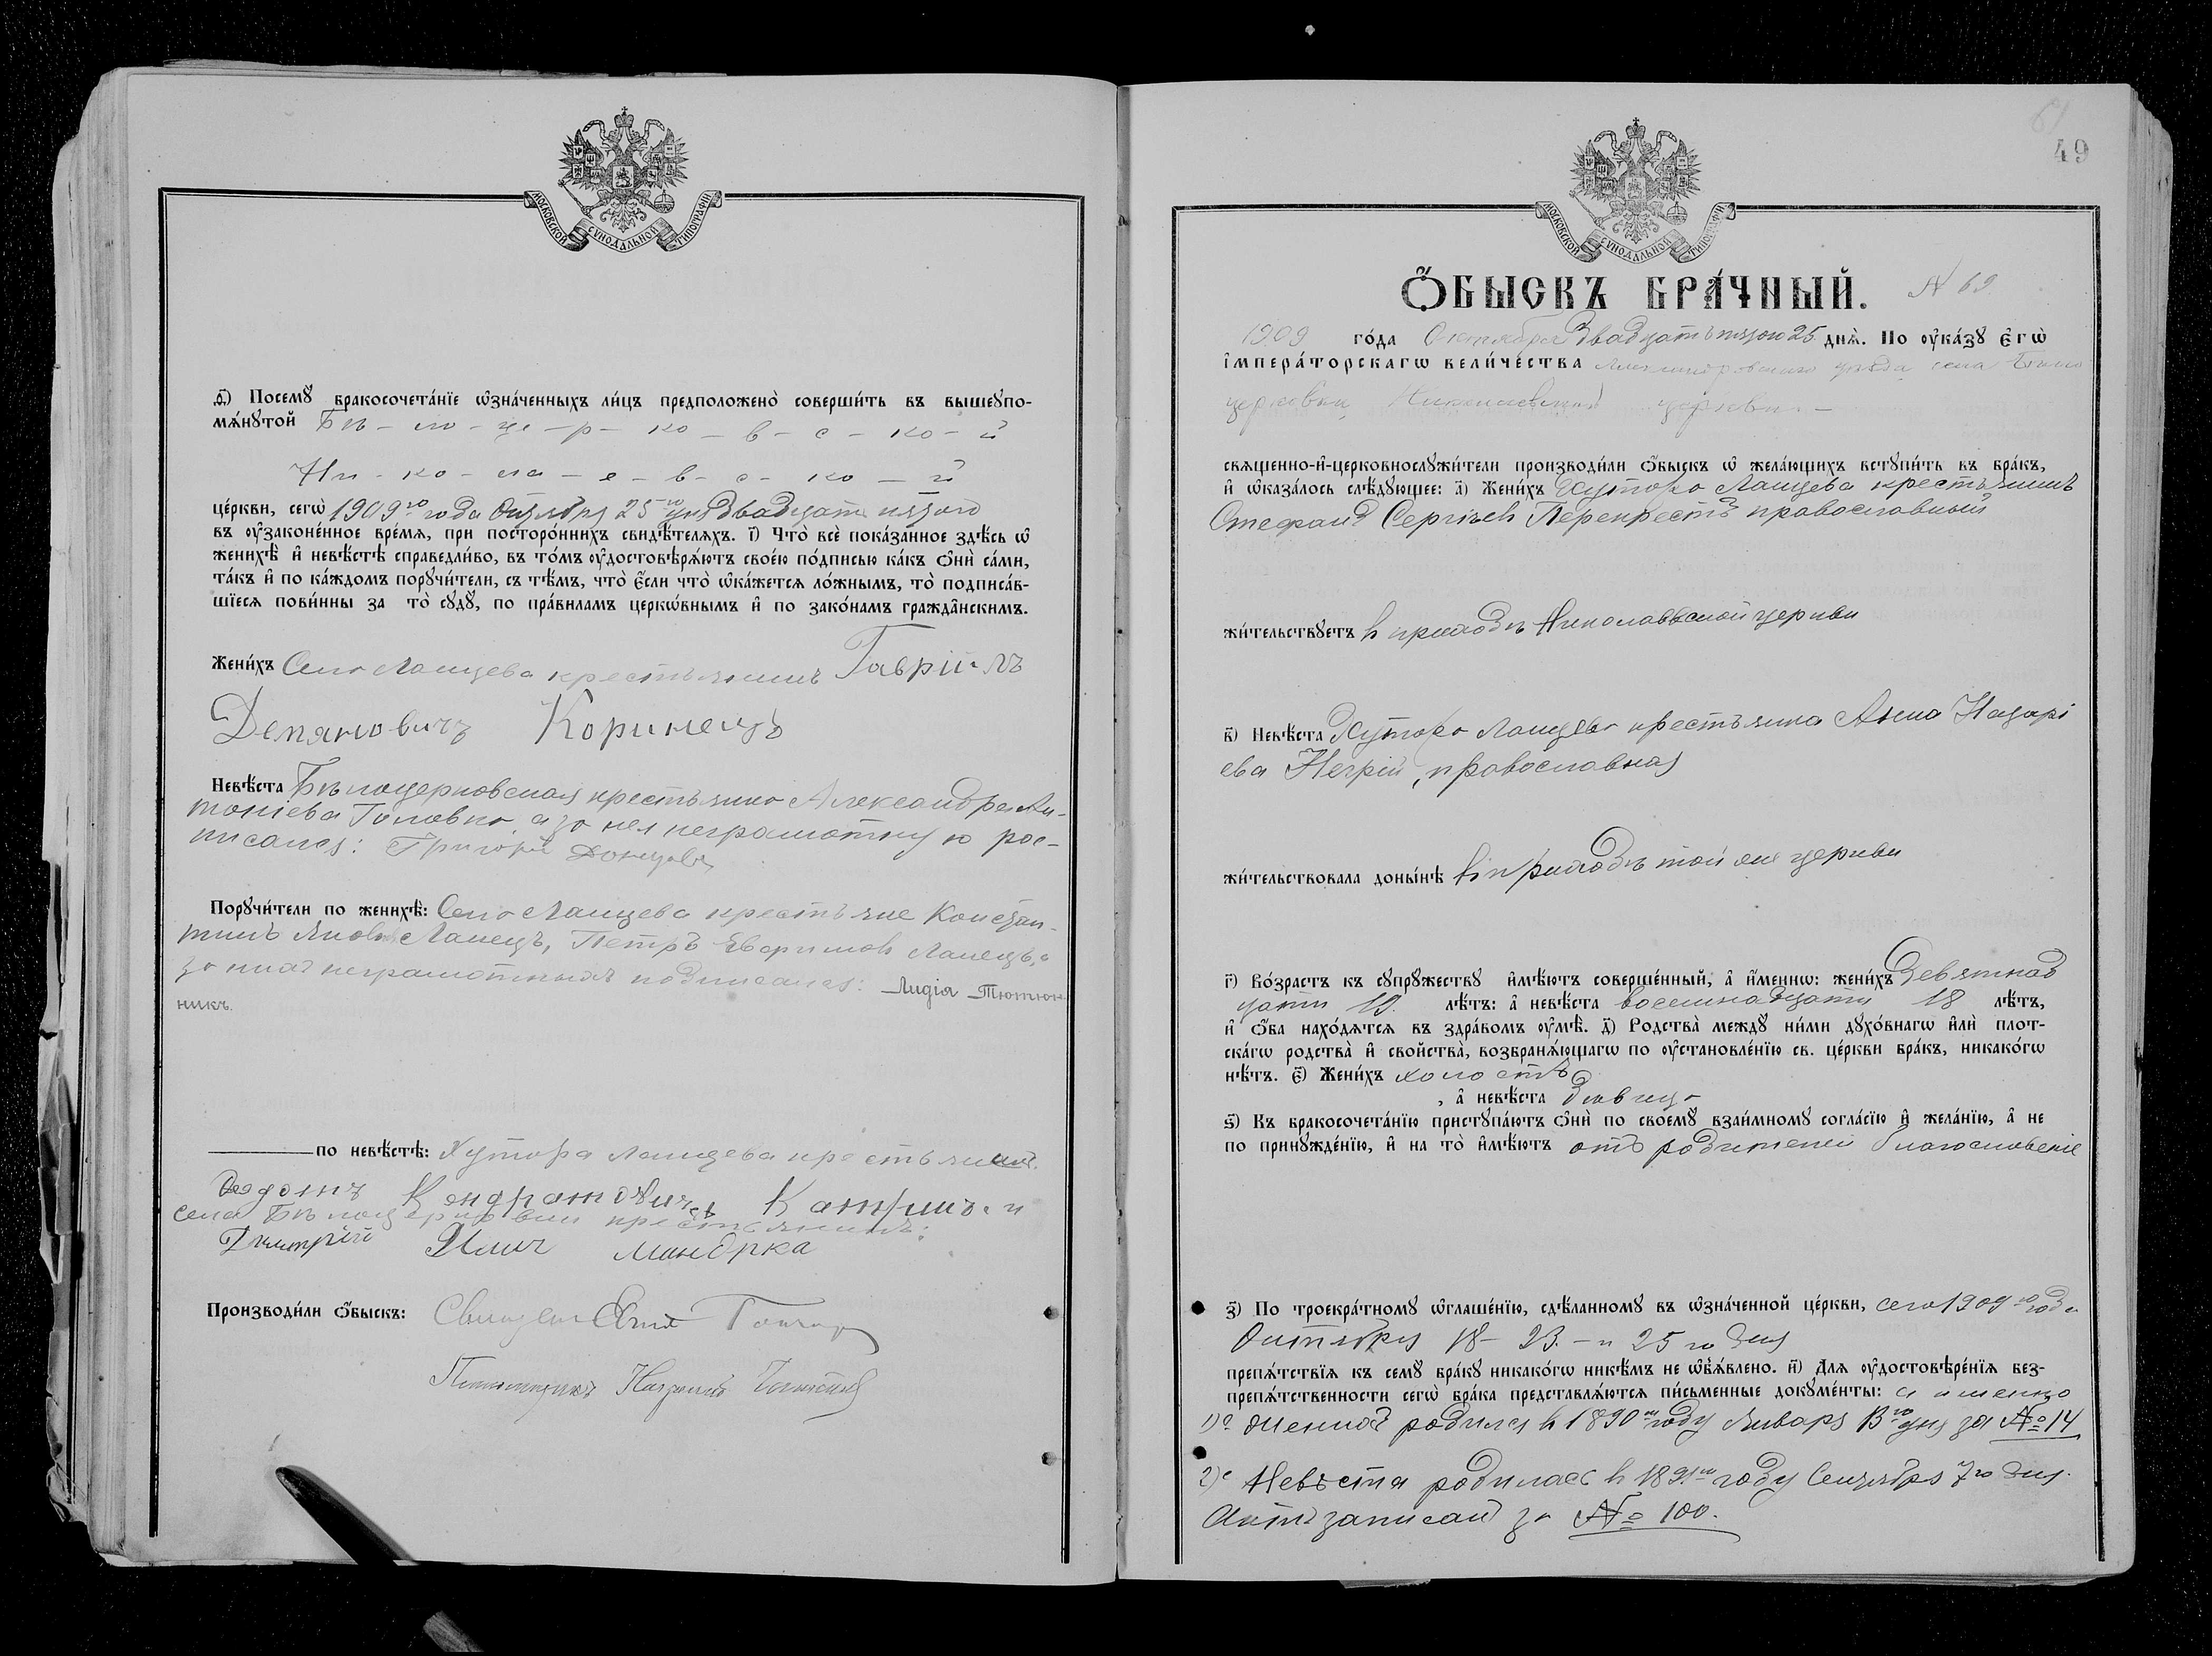 МОСКОВСКОЙ СѴНОДАЛЬНОЙ ТИПОГРАФІИ
ѳ҃) Посемꙋ бракосочета́нїе ѡ҆зна́ченныхъ ли́цъ предположено̀ соверши́ть въ вышеꙋпо-
мѧ́нꙋтой Бѣ-ло-це-р-ко-в-с-ко-й
Ни-ко-ла-е-в-с-ко-й
це́ркви, сегѡ̀ 1909го года Октября 25го дня двадцать пятого
въ ᲂу҆законе́нное вре́мѧ, при посторо́ннихъ свидѣ́телѧхъ. і҃) Что̀ всѐ пока́занное здѣ́сь ѡ҆
женихѣ̀ и҆ невѣ́стѣ справедли́во, въ то́мъ ᲂу҆достовѣрѧ́ютъ свое́ю по́дписью ка́къ ѻ҆нѝ са́ми,
та́къ и҆ по ка́ждомъ порꙋчи́тели, съ тѣ́мъ, что̀ є҆́сли что̀ ѡ҆ка́жетсѧ ло́жнымъ, то̀ подписа́в-
шїесѧ пови́нны за то̀ сꙋдꙋ̀, по пра́виламъ церкѡ́внымъ и҆ по зако́намъ гражда̑нскимъ.
Жени́хъ Села Ланцева крестьянинъ Гавріилъ
Демяновичъ Коринецъ
Невѣ́ста Бѣлоцерковская крестьянка Александра Ан-
тоніева Головко, а за нея неграмотную рос-
писался: Григорій Донцовъ
Порꙋчи́тели по женихѣ̀: Села Ланцева крестьяне Констан-
тинъ Ланецъ, Петръ Ланецъ, а
за них неграмотных подписался: Лидія Тютюн-
никъ.
по невѣ́стѣ: Хутора Ланцева крестьянин
Федотъ Кондратовичъ и
села Бѣлоцерковки крестьянинъ:
Димитрій Илич Мандрка
Производи́ли ѻ҆́быскъ: Священ Гончар
Псаломщикъ
61
49
МОСКОВСКОЙ СѴНОДАЛЬНОЙ ТИПОГРАФІИ
Ѻ҆́БЫСКЪ БРА́ЧНЫЙ. № 69
1909 го́да Октября двадцать пятого 25 днѧ̀. По ᲂу҆ка́зꙋ є҆гѡ̀
і҆мпера́торскагѡ вели́чества уѣзда села Бѣло
церковки Николаевской церкви
свѧще́нно-и҆-церковнослꙋжи́тели производи́ли ѻ҆́быскъ ѡ҆ жела́ющихъ встꙋпи́ть въ бра́къ,
и҆ ѡ҆каза́лось слѣ́дꙋющее: а҃) Жени́хъ Хутора Ланцева крестьянинъ
Стефанъ Сергіевъ Перекрестъ православный
жи́тельствꙋетъ в приходѣ Николаевской церкви
в҃) Невѣ́ста Хутора Ланцева крестьянка Анна Назарі
ева Негрій, православная
жи́тельствовала доны́нѣ в приходѣ той же церкви
г҃) Во́зрастъ къ сꙋпрꙋ́жествꙋ и҆мѣ́ютъ соверше́нный, а҆ и҆́меннѡ: жени́хъ Девятнад
цати 19. лѣ́тъ: а҆ невѣ́ста восемнадцати 18 лѣ́тъ,
и҆ ѻ҆́ба нахо́дѧтсѧ въ здра́вомъ ᲂу҆мѣ̀. д҃) Родства̀ междꙋ̀ ни́ми дꙋхо́внагѡ и҆лѝ плот-
ска́гѡ родства̀ и҆ свойства̀, возбранѧ́ющагѡ по ᲂу҆становле́нїю св. це́ркви бра́къ, никако́гѡ
нѣ́тъ. є҃) Жени́хъ холостъ
, а҆ невѣ́ста дѣвица
ѕ҃) Къ бракосочета́нїю пристꙋпа́ютъ ѻ҆нѝ по своемꙋ̀ взаи́мномꙋ согла́сїю и҆ жела́нїю, а҆ не
по принꙋжде́нїю, и҆ на то̀ и҆мѣ́ютъ отъ родителей благословеніе
з҃) По троекра́тномꙋ ѡ҆глаше́нїю, сдѣ́ланномꙋ въ ѡ҆зна́ченной це́ркви, сего 1909го года
Октября 18 - 23. - и 25го дня
препѧ́тствїѧ къ семꙋ̀ бра́кꙋ никако́гѡ никѣ́мъ не ѡ҆б̾ѧ́влено. и҃) Длѧ ᲂу҆достовѣре́нїѧ без-
препѧ́тственности сегѡ̀ бра́ка представлѧ́ютсѧ пи́сьменные докꙋме́нты: а именно
1)е жених родился в 1890м году Января 13го дня за № 14
2)е Невѣста родилась в 1891м году Сентября 7го дня.
Актъ записанъ за № 100.